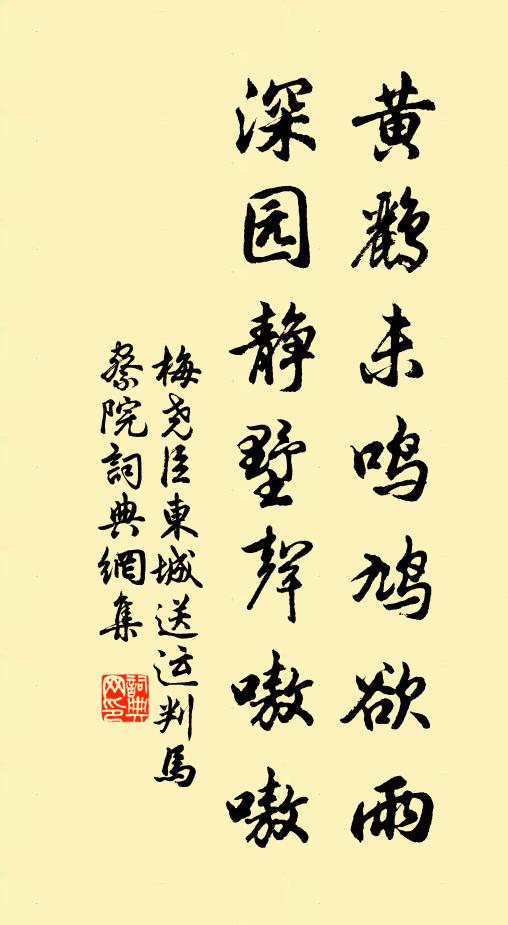 黄鹂未鸣鸠欲雨
深园静墅聲嗷嗷
梅尧臣東城送运判馬
察院詞典網集
詞典网印